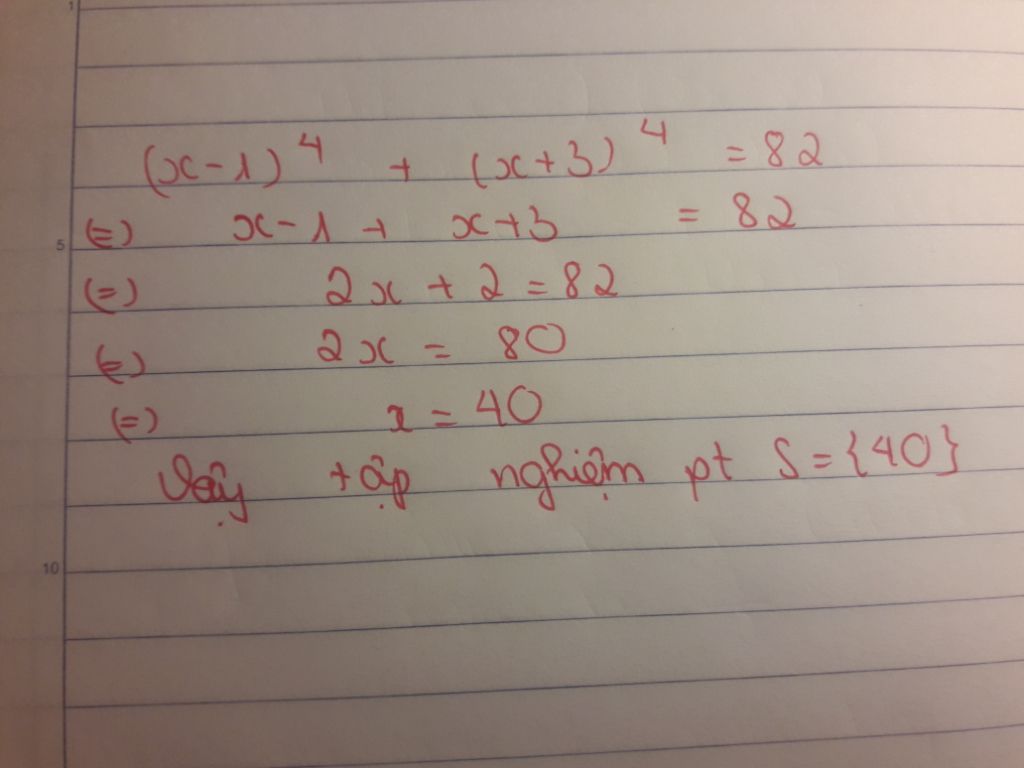 1
(x-1)⁴ + (x+3)⁴ = 82
5 (=) x-1 + x+3 = 82
(=) 2x + 2 = 82
(=) 2x = 80
(=) x = 40
Vậy tập nghiệm pt S = {40}
10